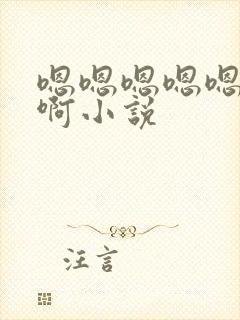 嗯嗯嗯嗯嗯
啊小説
汪言